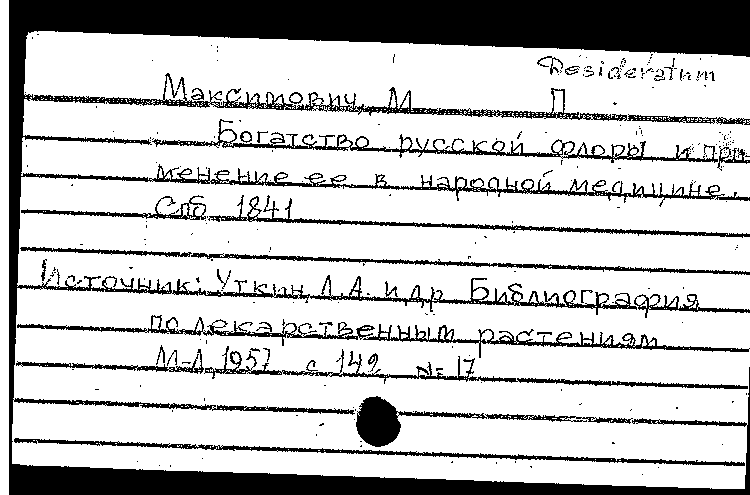 Desideratum
Максимович, М П
Богатство русской флоры и при
менение ее в народной медицине.
Спб 1841
Источник: Уткин Л.А. и др Библиография
по лекарственным растениям
М-Л, 1957 с 142, № 17